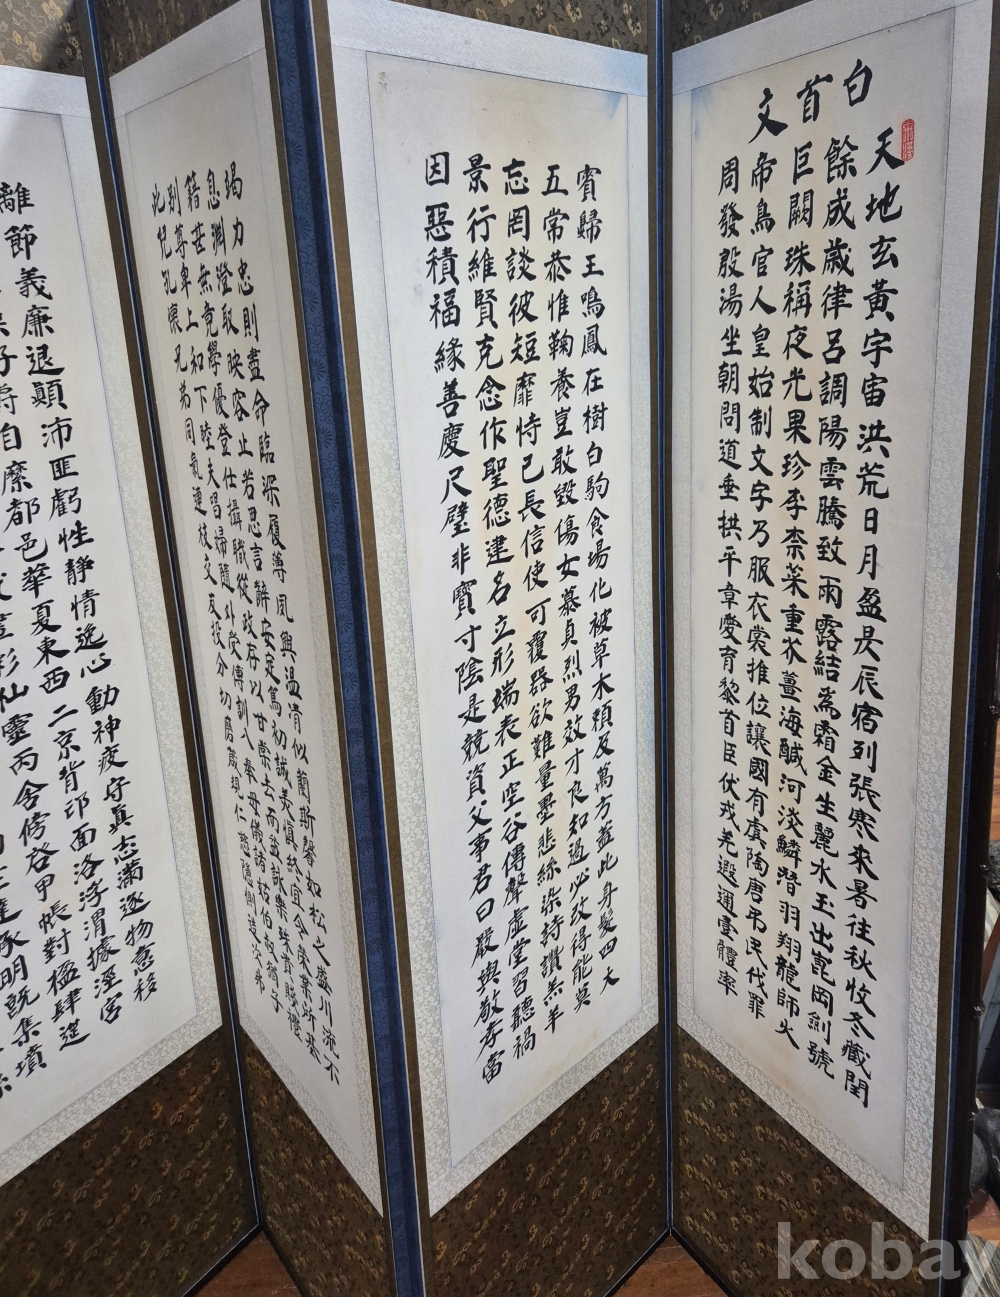 白首文
天地玄黃宇宙洪荒日月盈昃辰宿列張寒來暑往秋收冬藏閏
餘成歲律呂調陽雲騰致雨露結為霜金生麗水玉出崑岡劍號
巨闕珠稱夜光果珍李柰菜重芥薑海鹹河淡鱗潛羽翔龍師火
帝鳥官人皇始制文字乃服衣裳推位讓國有虞陶唐弔民伐罪
周發殷湯坐朝問道垂拱平章愛育黎首臣伏戎羌遐邇壹體率
賓歸王鳴鳳在樹白駒食場化被草木賴及萬方蓋此身髮四大
五常恭惟鞠養豈敢毀傷女慕貞烈男效才良知過必改得能莫
忘罔談彼短靡恃己長信使可覆器欲難量墨悲絲染詩讚羔羊
景行維賢克念作聖德建名立形端表正空谷傳聲虛堂習聽禍
因惡積福緣善慶尺璧非寶寸陰是競資父事君曰嚴與敬孝當
竭力忠則盡命臨深履薄夙興溫清似蘭斯馨如松之盛川流不
息淵澄取映容止若思言辭安定篤初誠美慎終宜令榮業所基
籍甚無竟學優登仕攝職從政存以甘棠去而益詠樂殊貴賤禮
別尊卑上和下睦夫唱婦隨外受傅訓入奉母儀諸姑伯叔猶子
比兒孔懷兄弟同氣連枝交友投分切磨箴規仁慈隱惻造次弗
離節義廉退顛沛匪虧性靜情逸心動神疲守真志滿逐物意移
好爵自縻都邑華夏東西二京背邙面洛浮渭據涇宮
畫彩仙靈丙舍傍啓甲帳對楹肆筵
達承明既集墳
kobay